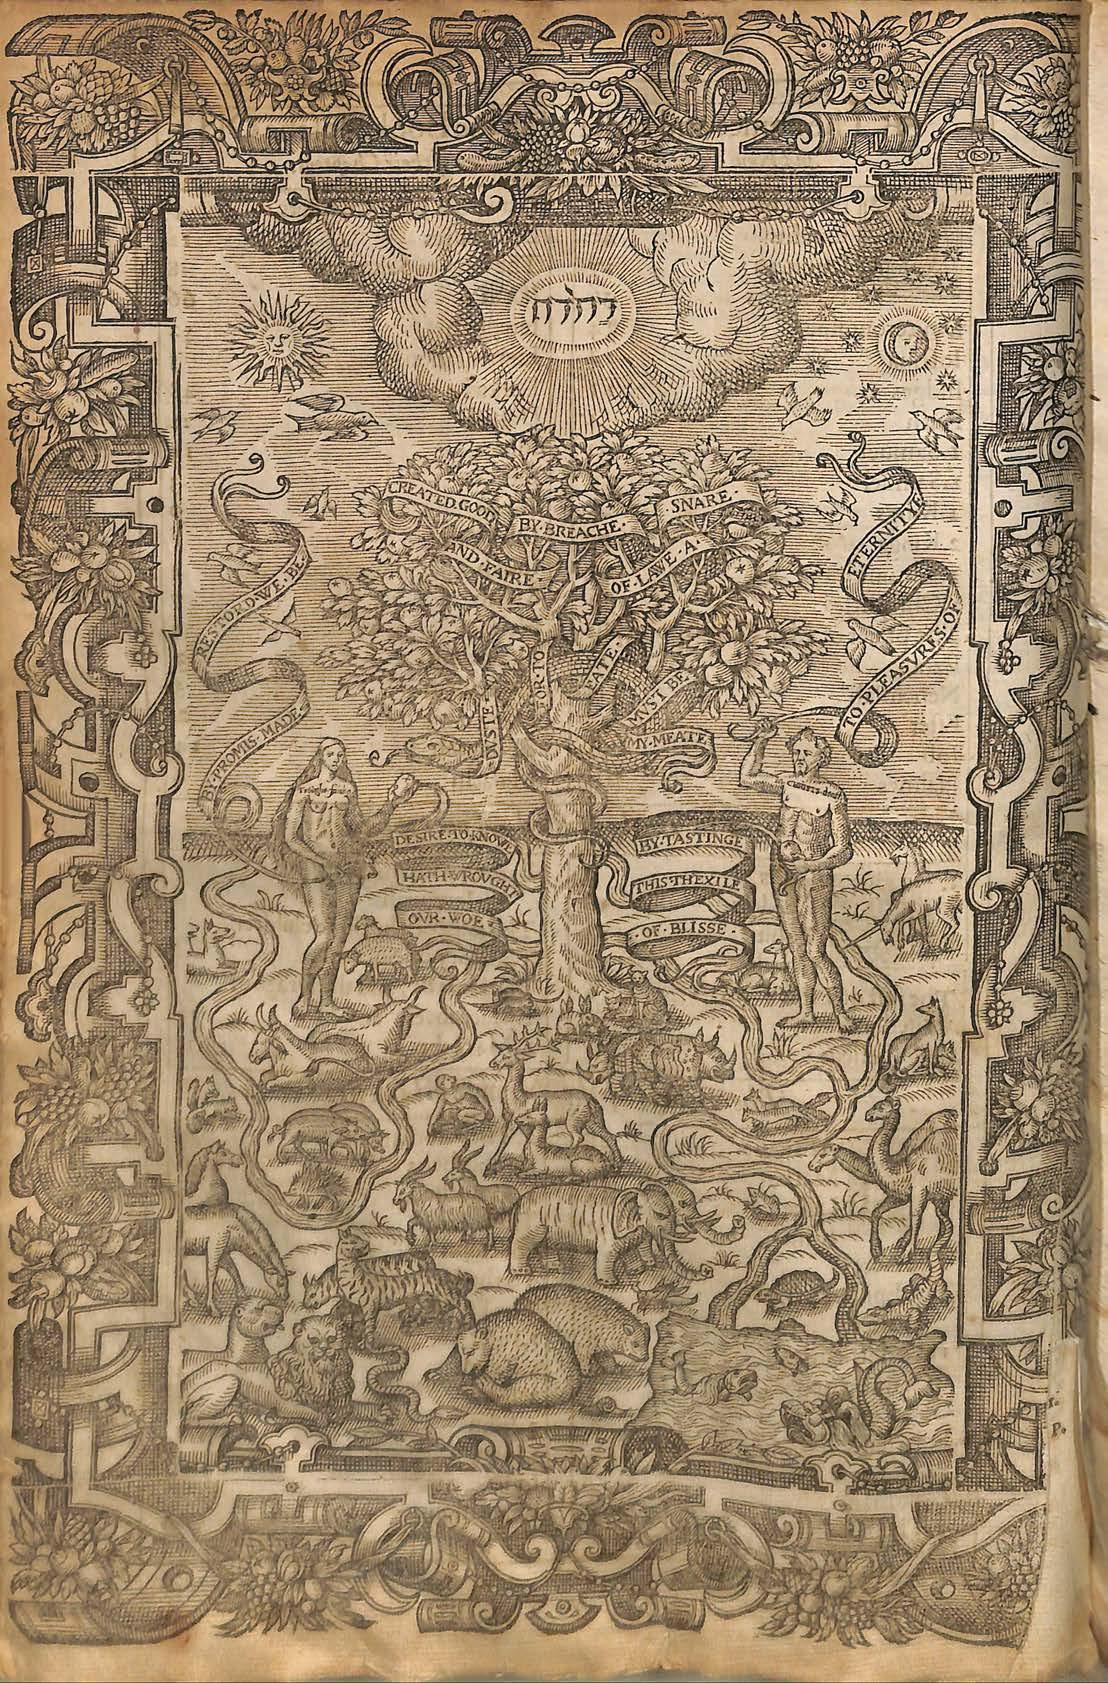 יהוה
CREATED·GOOD
AND·FAIRE·
BY·BREACHE·
OF·LAVE·A·
SNARE·
BY·PROMIS·MADE
RESTORD·WE·BE·
TO·PLEASVRES·OF
ETERNITYE
FOR·TO
TASTE
MVST BE
MY·MEATE
DESIRE·TO·KNOWE
HATH·WROVGHT
OVR·WOE·
BY·TASTINGE
THIS·THEXILE
·OF·BLISSE·